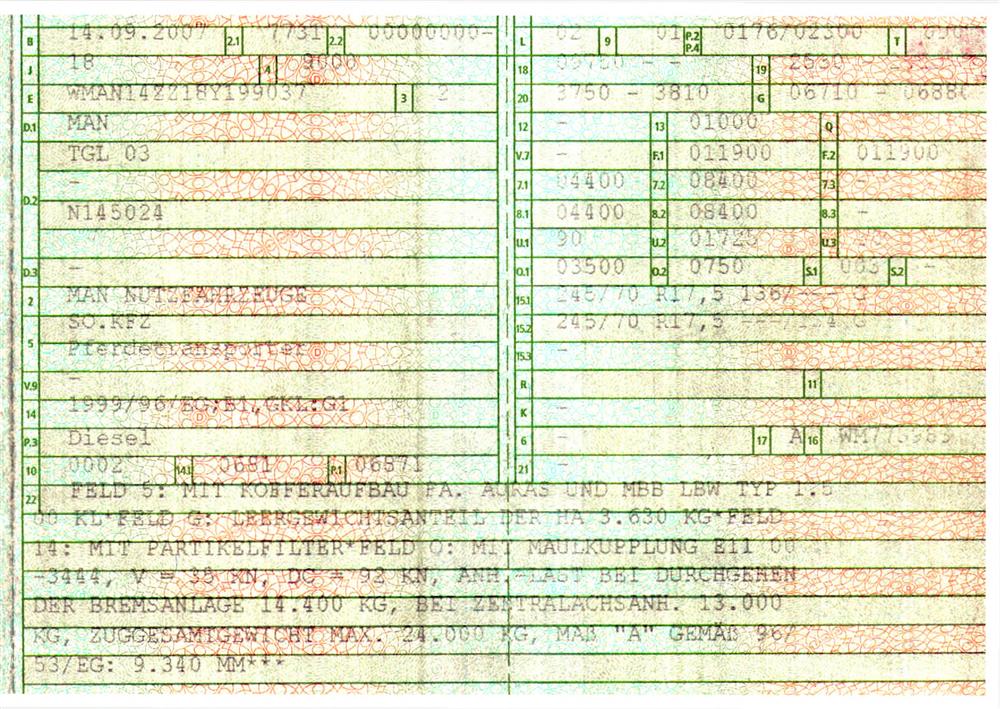 B 14.09.2007 2.1 7731 2.2 00000000-
J 18 4 9000
E WMAN14ZZ18Y199037 3 2
D.1 MAN
TGL 03
D.2 -
N145024
D.3 -
2 MAN NUTZFAHRZEUGE
SO.KFZ
5 Pferdetransporter
V.9 -
14 1999/96/EG;B1,GKL:G1
P.3 Diesel
10 0002 14.1 0681 P.1 06871
L 02 9 01 P.2 P.4 0176/02300 T
18 09780 - - 19 2530
20 3750 - 3810 G 06710 - 0688
12 - 13 01000 Q
V.7 - F.1 011900 F.2 011900
7.1 04400 7.2 08400 7.3 -
8.1 04400 8.2 08400 8.3 -
U.1 90 U.2 01725 U.3
O.1 03500 O.2 0750 S.1 003 S.2 -
15.1 245/70 R17,5 136/--- G
15.2 245/70 R17,5 ---/134 G
15.3 -
R 11
K -
6 - 17 A 16
21 -
22 FELD 5: MIT KOFFERAUFBAU FA. AUKAS UND MBB LBW TYP 1.5
00 KL*FELD G: LEERGEWICHTSANTEIL DER HA 3.630 KG*FELD
14: MIT PARTIKELFILTER*FELD O: MIT MAULKUPPLUNG E11 00
-3444, V = 35 KN, DC = 92 KN, ANH.-LAST BEI DURCHGEHEN
DER BREMSANLAGE 14.400 KG, BEI ZENTRALACHSANH. 13.000
KG, ZUGGESAMTGEWICHT MAX. 24.000 KG, MAß "A" GEMÄß 96/
53/EG: 9.340 MM***